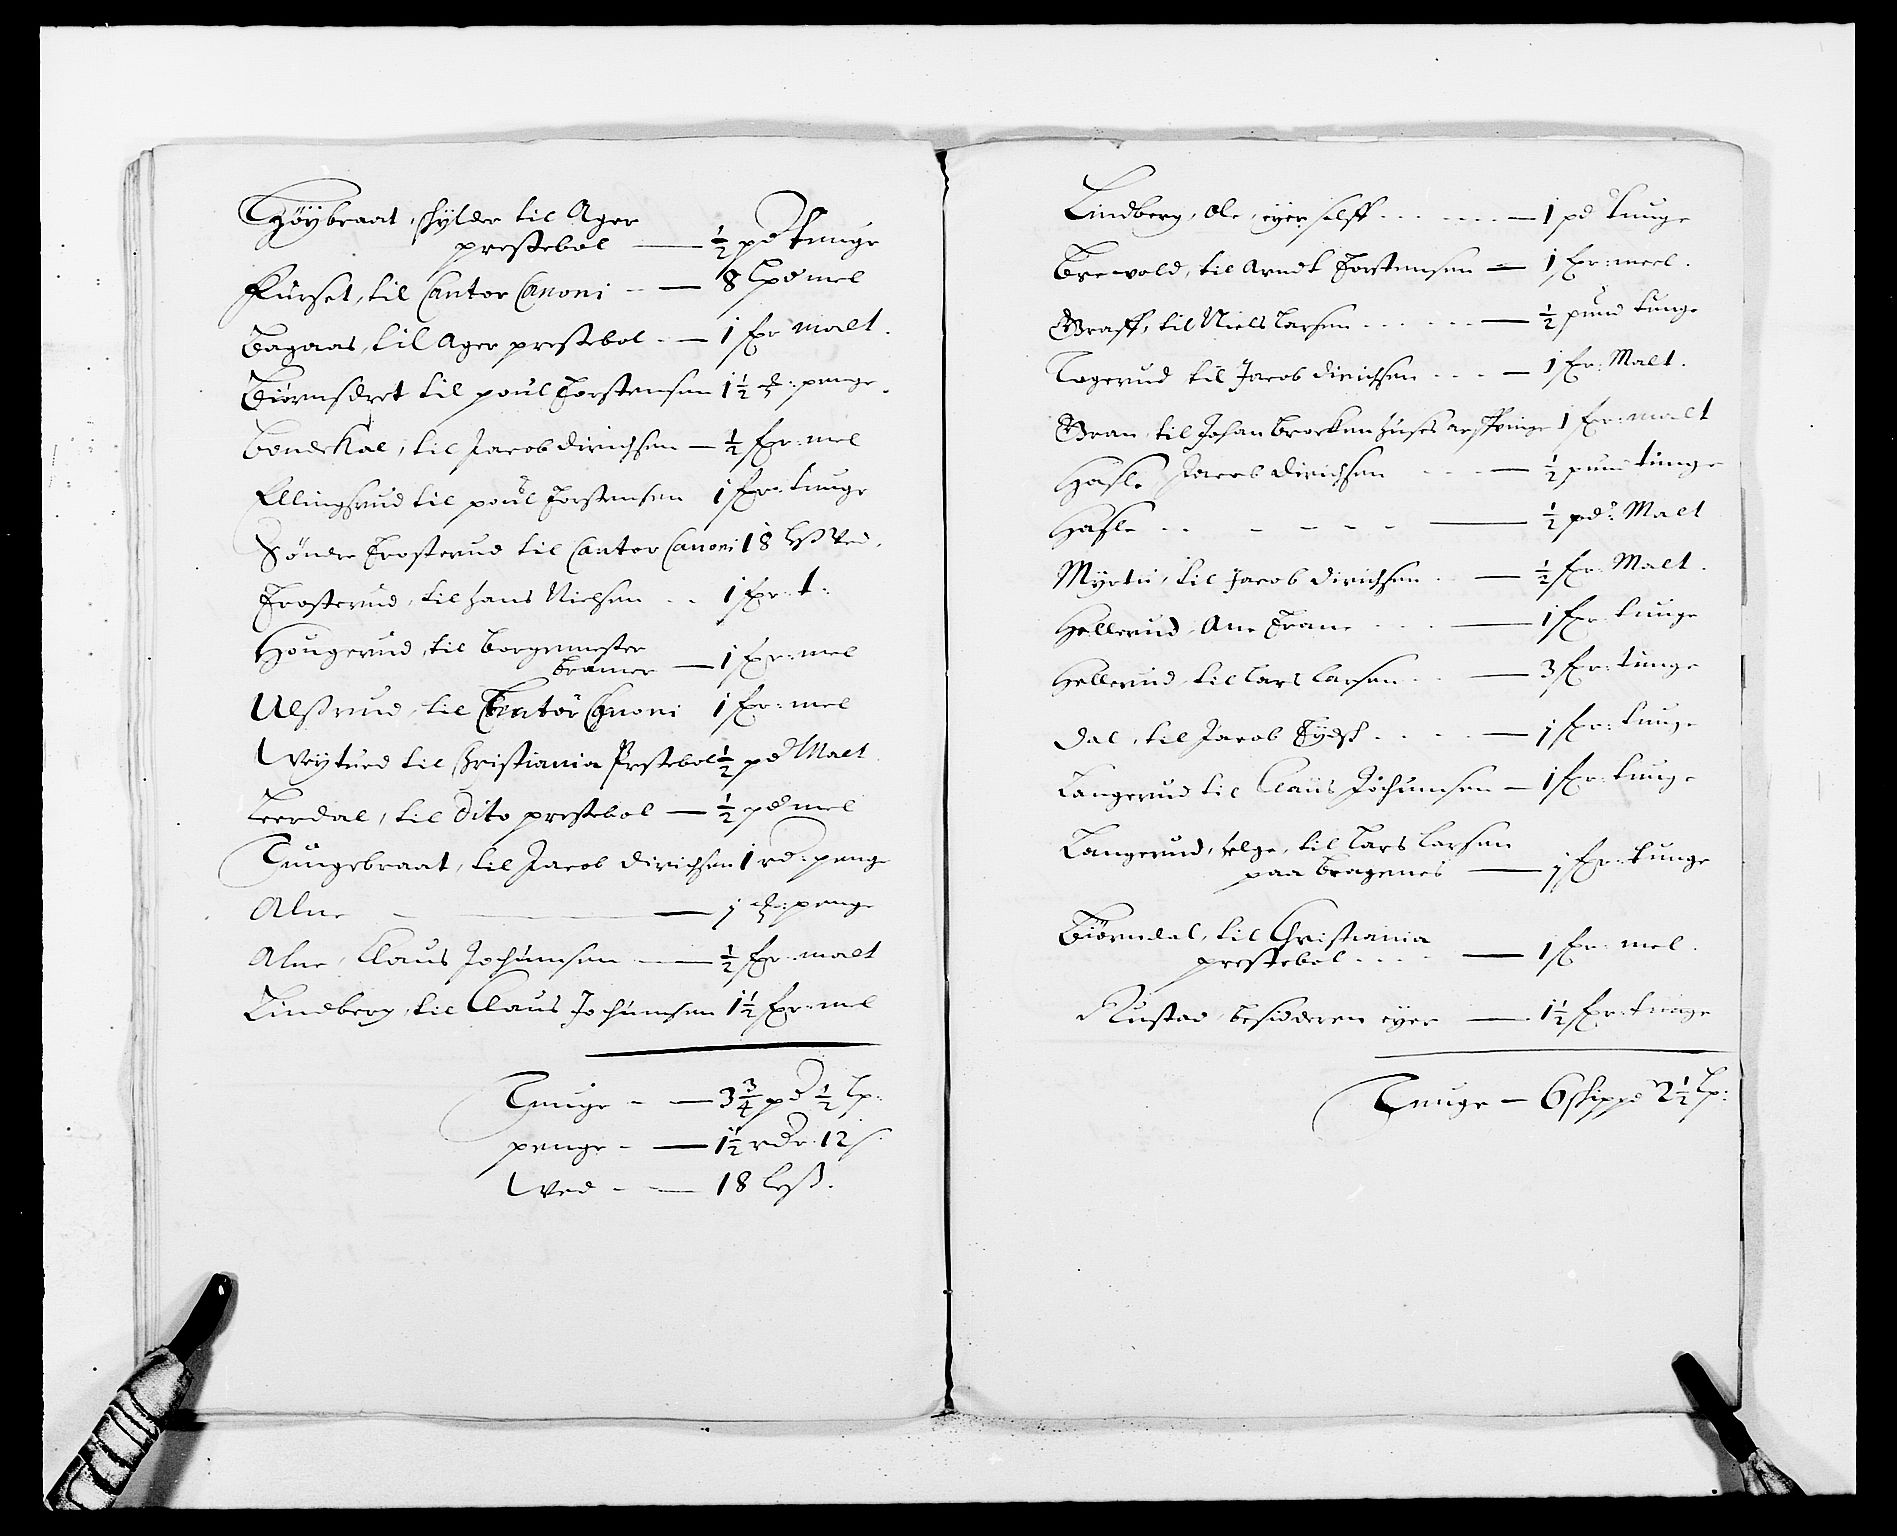 Høybraat, skylder til Ager
prestebol — ½ pd tunge
Furset, til Cantor Canoni — 8 lpd mel
Bagaas, til Ager prestebol — 1 fxr malt.
Biørnsdret til poul Torstensen 1½ dr: penge.
Bondekal, til Jacob Dirichsen — ½ fxr: mel
Ellingsrud til poul Torstensen 1 fxr: tunge
Søndre Trosterud til Cantor Canoni 18 less Ved.
Trosterud, til Hans Nielsen . . 1 fxr: t.
Hougerud, til borgemester
bramer — 1 fxr: mel
Ulssrud, til Cantor Canoni 1 fxr: mel
Weytued til Christiania Prestebol ½ pd Malt
Leerdal, til dito prestebol — ½ pd mel
Tungebraat, til Jacob Dirichsen 1 rd: penge
Alne — 1 dr: penge
Alne, Claus Jochumsen — ½ fxr malt
Lindberg, til Claus Jochumsen 1½ fxr: mel
Tunge - — 3¾ pd ½ Lp:
penge - — 1½ rdr. 12 s.
Wed - — 18 less.
Lindberg, Ole, eyer selff . . . . . . — 1 pd tunge
Brevold, til Arndt Torstensen — 1 fxr: meel.
Graff, til Niels Larsen . . . . . . — ½ pund tunge
Togerud til Jacob Dirichsen . . . — 1 fxr: Malt.
Gran til Johan Brockenhuses arffvinge 1 fxr: malt
Hasle Jacob Dirichsen . . . — ½ pund tunge
Hasle . . - - - - — ½ pdr. Malt
Myrtu, til Jacob Dirichsen . . — ½ fxr: Malt.
Hellerud, Ane Trane . . . — 1 fxr: tunge
Hellerud, til Lars Larsen . . — 3 fxr: tunge
Dal, til Jacob Tydsch . . . . — 1 fxr: tunge
Langerud til Claus Jochumsen — 1 fxr: tunge
Langerud, Helge, til Lars Larsen
paa Bragenes — 1 fxr: tunge
Biørndal, til Christiania
prestebol . . . . — 1 fxr: mel.
Rustad, besidderen eyer — 1½ fxr: tunge
Tunge — 6 skippd 2½ Lp: